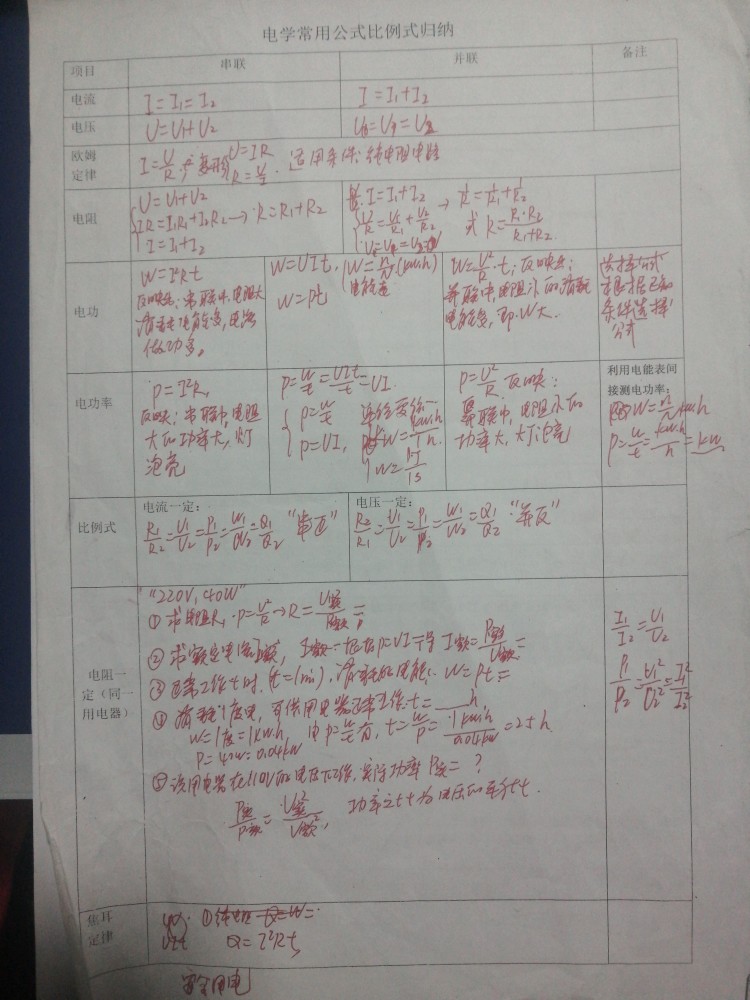 电学常用公式比例式归纳
项目 串联 并联 备注
电流 I=I₁=I₂ I=I₁+I₂
电压 U=U₁+U₂
欧姆定律 I=U/R U=IR R=U/I 适用条件:纯电阻电路
电阻
U=U₁+U₂
IR=I₁R₁+I₂R₂→R=R₁+R₂
I=I₁+I₂
I=I₁+I₂
U/R=U₁/R₁+U₂/R₂ → 1/R=1/R₁+1/R₂
或 R=R₁·R₂/R₁+R₂
电功
W=I²Rt
反映出:串联中,电阻大
消耗电能多,电流
做功多。
W=UIt,
W=Pt
W=n/N(kw.h)
W=U²/R·t;反映出:
并联中电阻小的消耗
电能多,即W大.
选择公式
根据已知
条件选择
公式
电功率
P=I²R,
反映出;串联中,电阻
大的功率大,灯
泡亮
P=W/t=UIt/t=UI.
P=W/t
P=UI,
P=U²/R.反映出:
并联中,电阻小的
功率大,灯泡亮
利用电能表间
接测电功率:
W=n/N kw.h
P=W/t=kw.h/h=kw
比例式
电流一定:
R₁/R₂=U₁/U₂=P₁/P₂=W₁/W₂=Q₁/Q₂ “串正”
电压一定:
R₂/R₁=U₁/U₂=P₁/P₂=W₁/W₂=Q₁/Q₂ “并反”
电阻一
定(同一
用电器)
“220V,40W”
① 求电阻R,P=U²/R→R=U额²/P额=
② 求额定电流I额, P=UI I额=P额/U额=
③ 正常工作t时,(t=1min),消耗的电能:W=Pt=
④ 消耗1度电,可供用电器正常工作t=___h,
W=1度=1kw.h, 由P=W/t有, t=W/P=1kw.h/0.04kw=25h.
P=40w=0.04kw
⑤ 该用电器在110V的电压下工作,实际功率P实=?
P实/P额=U实²/U额², 功率之比为电压的平方比.
I₁/I₂=U₁/U₂
P₁/P₂=U₁²/U₂²=I₁²/I₂²
焦耳
定律
Q=I²Rt
安全用电